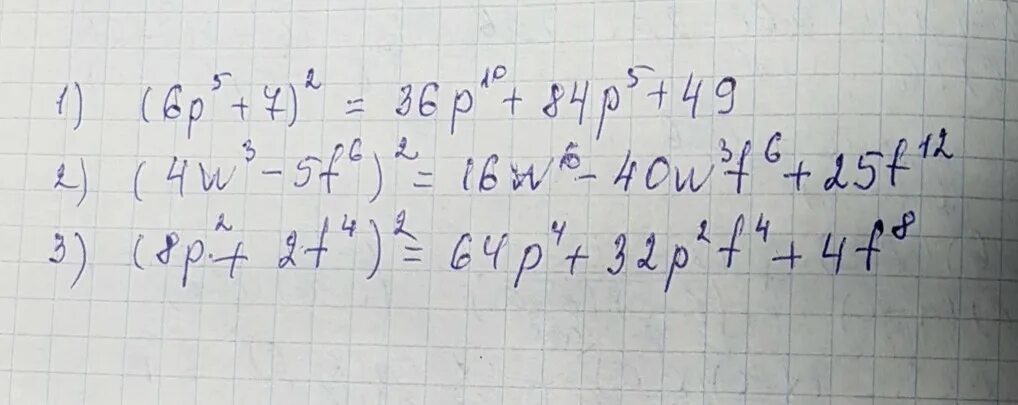 1) (6p⁵ + 7)² = 36p¹⁰ + 84p⁵ + 49
2) (4w³ - 5f⁶)² = 16w⁶ - 40w³f⁶ + 25f¹²
3) (8p² + 2f⁴)² = 64p⁴ + 32p²f⁴ + 4f⁸